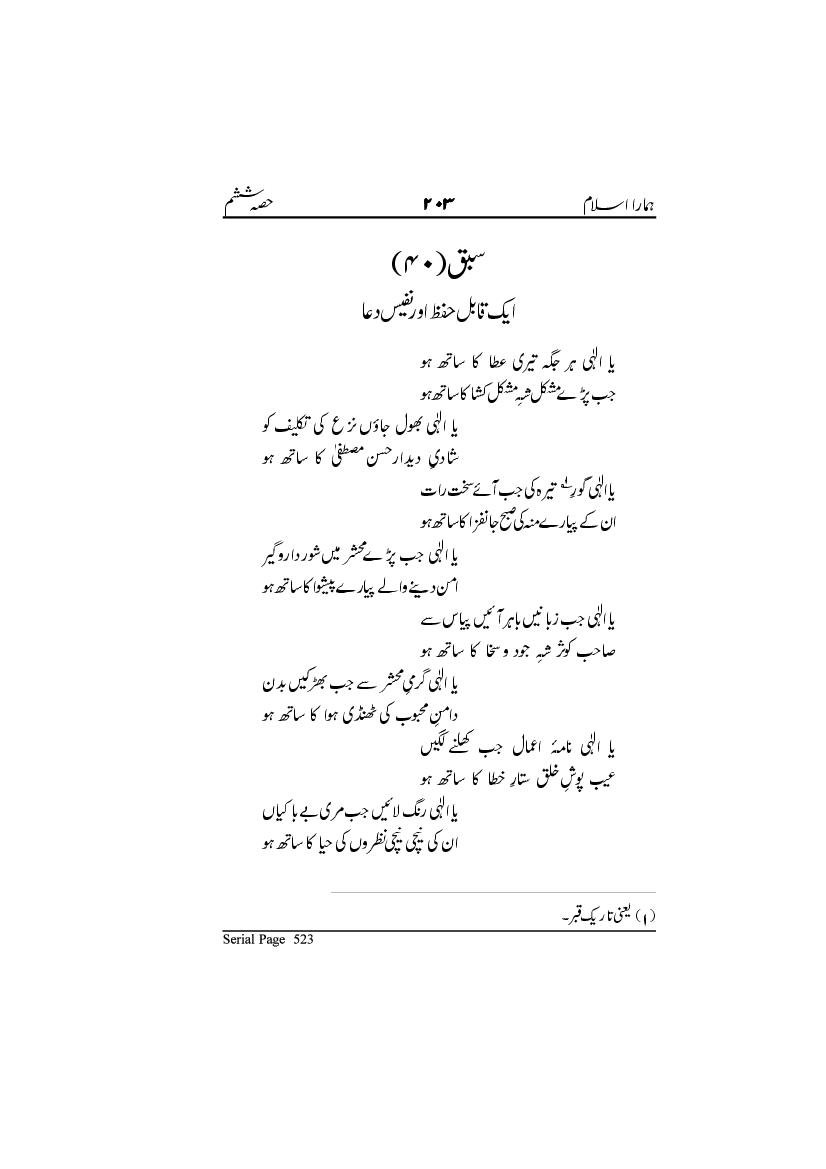 ہمارا اسلام ۲۰۳ حصہ ششم
سبق (۴۰)
ایک قابل حفظ اور نفیس دعا
یا الٰہی ہر جگہ تیری عطا کا ساتھ ہو
جب پڑے مشکل شہِ مشکل کشا کا ساتھ ہو
یا الٰہی بھول جاؤں نزع کی تکلیف کو
شادیِ دیدار حسن مصطفیٰ کا ساتھ ہو
یا الٰہی گورِ ۱؎ تیرہ کی جب آئے سخت رات
ان کے پیارے منہ کی صبح جانفزا کا ساتھ ہو
یا الٰہی جب پڑے محشر میں شور دار و گیر
امن دینے والے پیارے پیشوا کا ساتھ ہو
یا الٰہی جب زبانیں باہر آئیں پیاس سے
صاحب کوثر شہِ جود و سخا کا ساتھ ہو
یا الٰہی گرمیِ محشر سے جب بھڑکیں بدن
دامنِ محبوب کی ٹھنڈی ہوا کا ساتھ ہو
یا الٰہی نامۂ اعمال جب کھلنے لگیں
عیب پوشِ خلق ستارِ خطا کا ساتھ ہو
یا الٰہی رنگ لائیں جب مری بے باکیاں
ان کی نیچی نیچی نظروں کی حیا کا ساتھ ہو
(۱) یعنی تاریک قبر۔
Serial Page 523